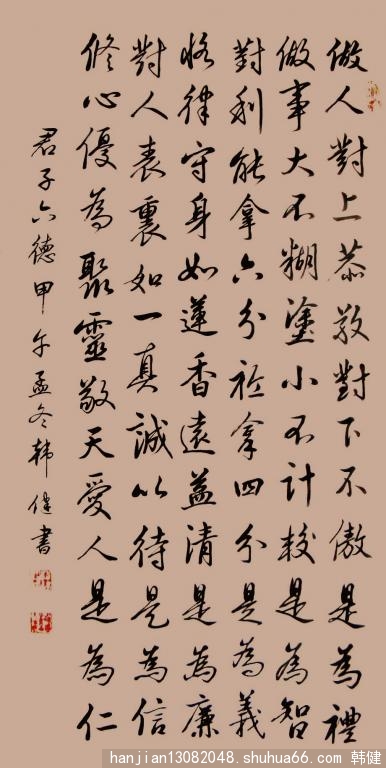 做人對上恭敬對下不傲是為禮
做事大不糊塗小不计較是為智
對利能拿六分袛拿四分是為義
恪律守身如蓮香遠益清是為廉
對人表裏如一真誠以待是為信
修心優為聚靈敬天愛人是為仁
君子六德甲午孟冬韩健書
hanjian13082048.shuhua66.com 韩健